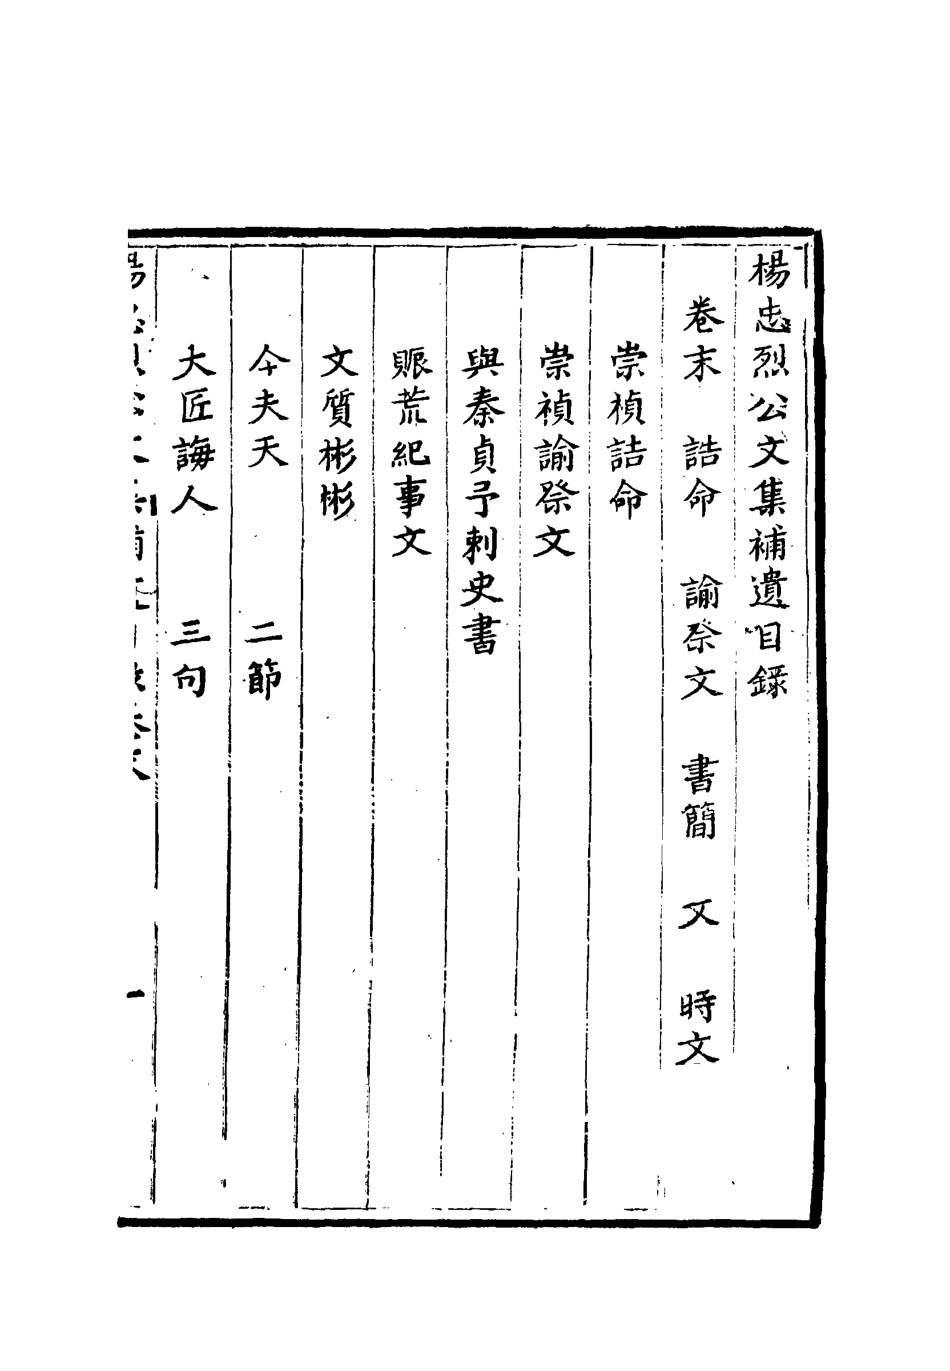 楊忠烈公文集補遺目錄
卷末　誥命　諭祭文　書簡　又　時文
崇禎誥命
崇禎諭祭文
與秦貞予刺史書
賑荒紀事文
文質彬彬
今夫天　二節
大匠誨人　三句